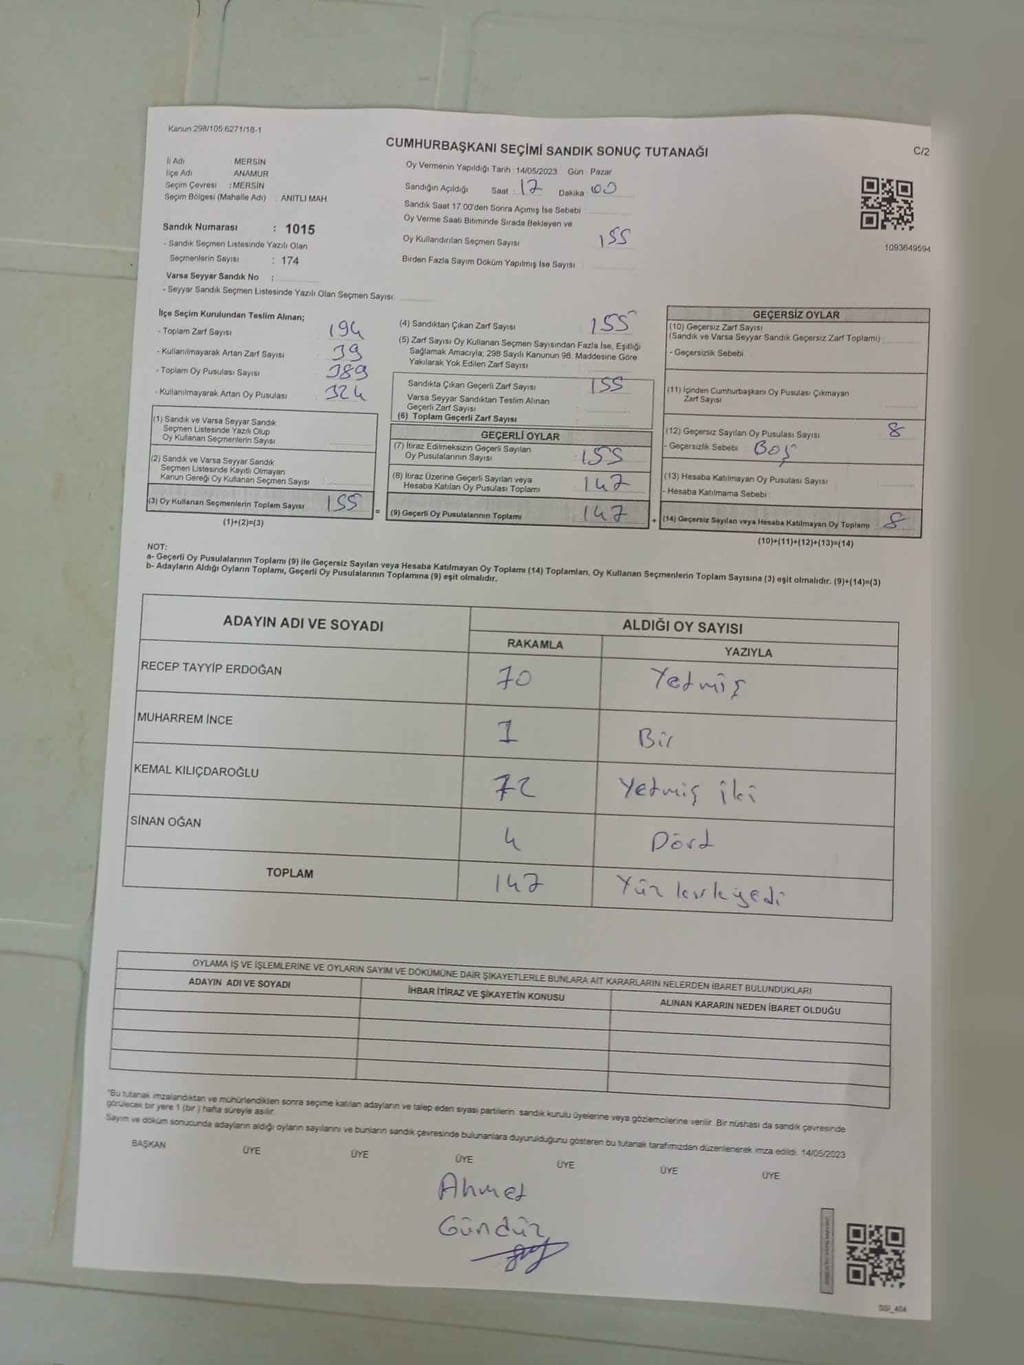 Kanun:298/105;6271/18-1
CUMHURBAŞKANI SEÇİMİ SANDIK SONUÇ TUTANAĞI
C/2
İl Adı MERSİN
İlçe Adı ANAMUR
Seçim Çevresi : MERSİN
Seçim Bölgesi (Mahalle Adı) : ANITLI MAH
Sandık Numarası : 1015
- Sandık Seçmen Listesinde Yazılı Olan
Seçmenlerin Sayısı : 174
Varsa Seyyar Sandık No :
- Seyyar Sandık Seçmen Listesinde Yazılı Olan Seçmen Sayısı
Oy Vermenin Yapıldığı Tarih :14/05/2023 Gün Pazar
Sandığın Açıldığı Saat : 17 Dakika 00
Sandık Saat 17.00'den Sonra Açımış İse Sebebi
Oy Verme Saati Bitiminde Sırada Bekleyen ve
Oy Kullandırılan Seçmen Sayısı 155
Birden Fazla Sayım Döküm Yapılmış İse Sayısı
1093649594
İlçe Seçim Kurulundan Teslim Alınan;
- Toplam Zarf Sayısı 194
- Kullanılmayarak Artan Zarf Sayısı 39
- Toplam Oy Pusulası Sayısı 389
- Kullanılmayarak Artan Oy Pusulası 324
(1) Sandık ve Varsa Seyyar Sandık
Seçmen Listesinde Yazılı Olup
Oy Kullanan Seçmenlerin Sayısı
(2) Sandık ve Varsa Seyyar Sandık
Seçmen Listesinde Kayıtlı Olmayan
Kanun Gereği Oy Kullanan Seçmen Sayısı
(3) Oy Kullanan Seçmenlerin Toplam Sayısı 155
(1)+(2)=(3)
=
(4) Sandıktan Çıkan Zarf Sayısı 155
(5) Zarf Sayısı Oy Kullanan Seçmen Sayısından Fazla İse, Eşitliği
Sağlamak Amacıyla; 298 Sayılı Kanunun 98. Maddesine Göre
Yakılarak Yok Edilen Zarf Sayısı
Sandıkta Çıkan Geçerli Zarf Sayısı 155
Varsa Seyyar Sandıktan Teslim Alınan
Geçerli Zarf Sayısı
(6) Toplam Geçerli Zarf Sayısı
GEÇERLİ OYLAR
(7) İtiraz Edilmeksizin Geçerli Sayılan
Oy Pusulalarının Sayısı 155
(8) İtiraz Üzerine Geçerli Sayılan veya
Hesaba Katılan Oy Pusulası Toplamı 147
(9) Geçerli Oy Pusulalarının Toplamı 147
+
GEÇERSİZ OYLAR
(10) Geçersiz Zarf Sayısı
(Sandık ve Varsa Seyyar Sandık Geçersiz Zarf Toplamı)
- Geçersizlik Sebebi
(11) İçinden Cumhurbaşkanı Oy Pusulası Çıkmayan
Zarf Sayısı
(12) Geçersiz Sayılan Oy Pusulası Sayısı 8
- Geçersizlik Sebebi BOŞ
(13) Hesaba Katılmayan Oy Pusulası Sayısı
- Hesaba Katılmama Sebebi
(14) Geçersiz Sayılan veya Hesaba Katılmayan Oy Toplamı 8
(10)+(11)+(12)+(13)=(14)
NOT:
a- Geçerli Oy Pusulalarının Toplamı (9) ile Geçersiz Sayılan veya Hesaba Katılmayan Oy Toplamı (14) Toplamları, Oy Kullanan Seçmenlerin Toplam Sayısına (3) eşit olmalıdır. (9)+(14)=(3)
b- Adayların Aldığı Oyların Toplamı, Geçerli Oy Pusulalarının Toplamına (9) eşit olmalıdır.
ADAYIN ADI VE SOYADI ALDIĞI OY SAYISI
RAKAMLA YAZIYLA
RECEP TAYYİP ERDOĞAN 70 Yetmiş
MUHARREM İNCE 1 Bir
KEMAL KILIÇDAROĞLU 72 Yetmiş iki
SİNAN OĞAN 4 Dörd
TOPLAM 147 Yüz kırkiyedi
OYLAMA İŞ VE İŞLEMLERİNE VE OYLARIN SAYIM VE DÖKÜMÜNE DAİR ŞİKAYETLERLE BUNLARA AİT KARARLARIN NELERDEN İBARET BULUNDUKLARI
ADAYIN ADI VE SOYADI İHBAR İTİRAZ VE ŞİKAYETİN KONUSU ALINAN KARARIN NEDEN İBARET OLDUĞU
"Bu tutanak imzalandıktan ve mühürlendikten sonra seçime katılan adayların ve talep eden siyasi partilerin sandık kurulu üyelerine veya gözlemcilerine verilir. Bir nüshası da sandık çevresinde
görülecek bir yere 1 (bir ) hafta süreyle asılır.
Sayım ve döküm sonucunda adayların aldığı oyların sayılarını ve bunların sandık çevresinde bulunanlara duyurulduğunu gösteren bu tutanak tarafımızdan düzenlenerek imza edildi. 14/05/2023
BAŞKAN ÜYE ÜYE ÜYE ÜYE ÜYE ÜYE
Ahmet
Gündüz
SSI_404